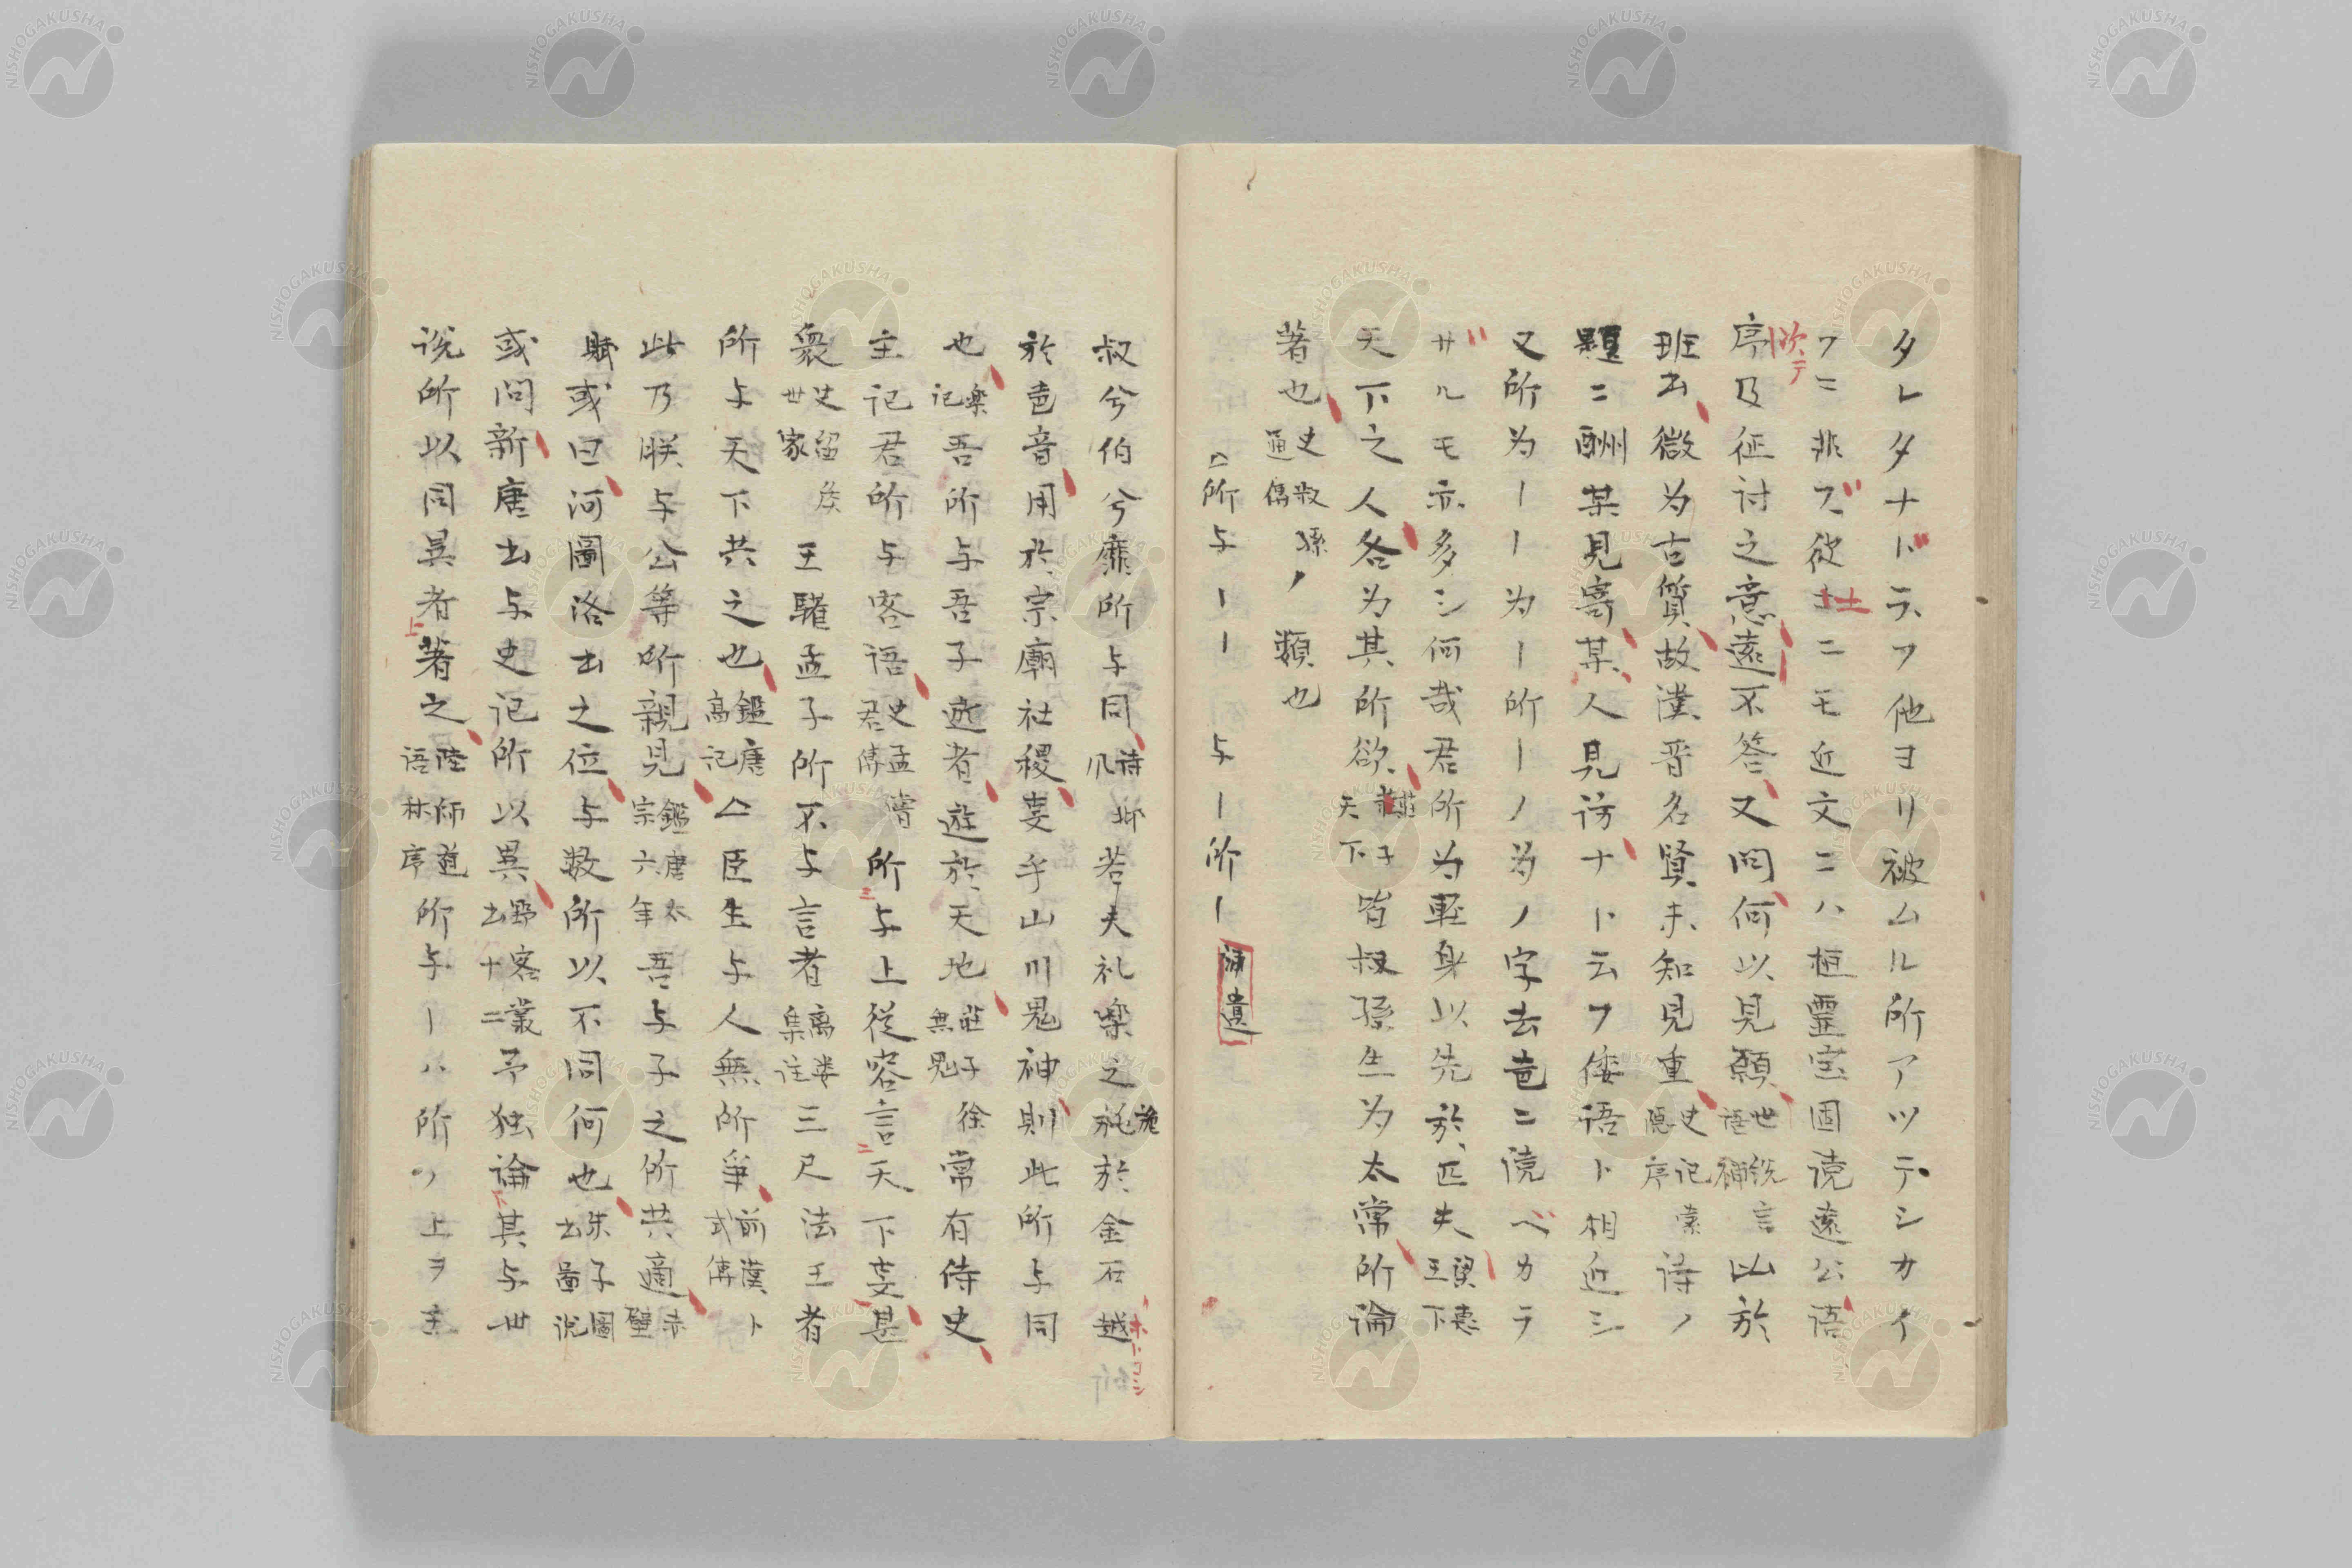 タレタナドラ、フ他ヨリ被ムル所アツテシカイ
フニ非ズ彼土ニモ近文ニハ恒霊宝固読遠公語
次テ
序及征討之意遠不答又問何以見願世説言語補以於
班固微为古質故漢晋名賢未知見重史記索隠序詩ノ
題ニ酬某見寄某人見訪ナト云フ倭語ト相近シ
又所为ーー为ー所ーノ为ノ字去声ニ読ベカラ
ザルモ亦多シ何哉君所为軽身以先於匹夫梁恵王下
天下之人各为其所欲荘子天下皆叔孫生为太常所論
著也史叔孫通傳ノ類也
△所与ーー与ー所ー補遺
叔兮伯兮靡所与同詩邶风若夫礼楽之施於金石越
於声音用於宗廟社稷事乎山川鬼神則此所与同
也楽記吾所与吾子逝者遊於天地荘子徐無鬼常有侍史
主記君所与客語史孟嘗君傳所与上従容言天下事甚
衆史留侯世家王驩孟子所不与言者離婁集注三尺法王者
所与天下共之也鑑唐高記人臣生与人無所争前漢卜式傳
此乃朕与公等所親見鑑唐太宗六年吾与子之所共適赤壁
賦或曰河圖洛出之位与数所以不同何也朱子圖出啚说
或问新唐出与史记所以異野客叢出十二予独論其与世
说所以同異者著之陸師道語林序所与ーハ所ノ上ヲ主